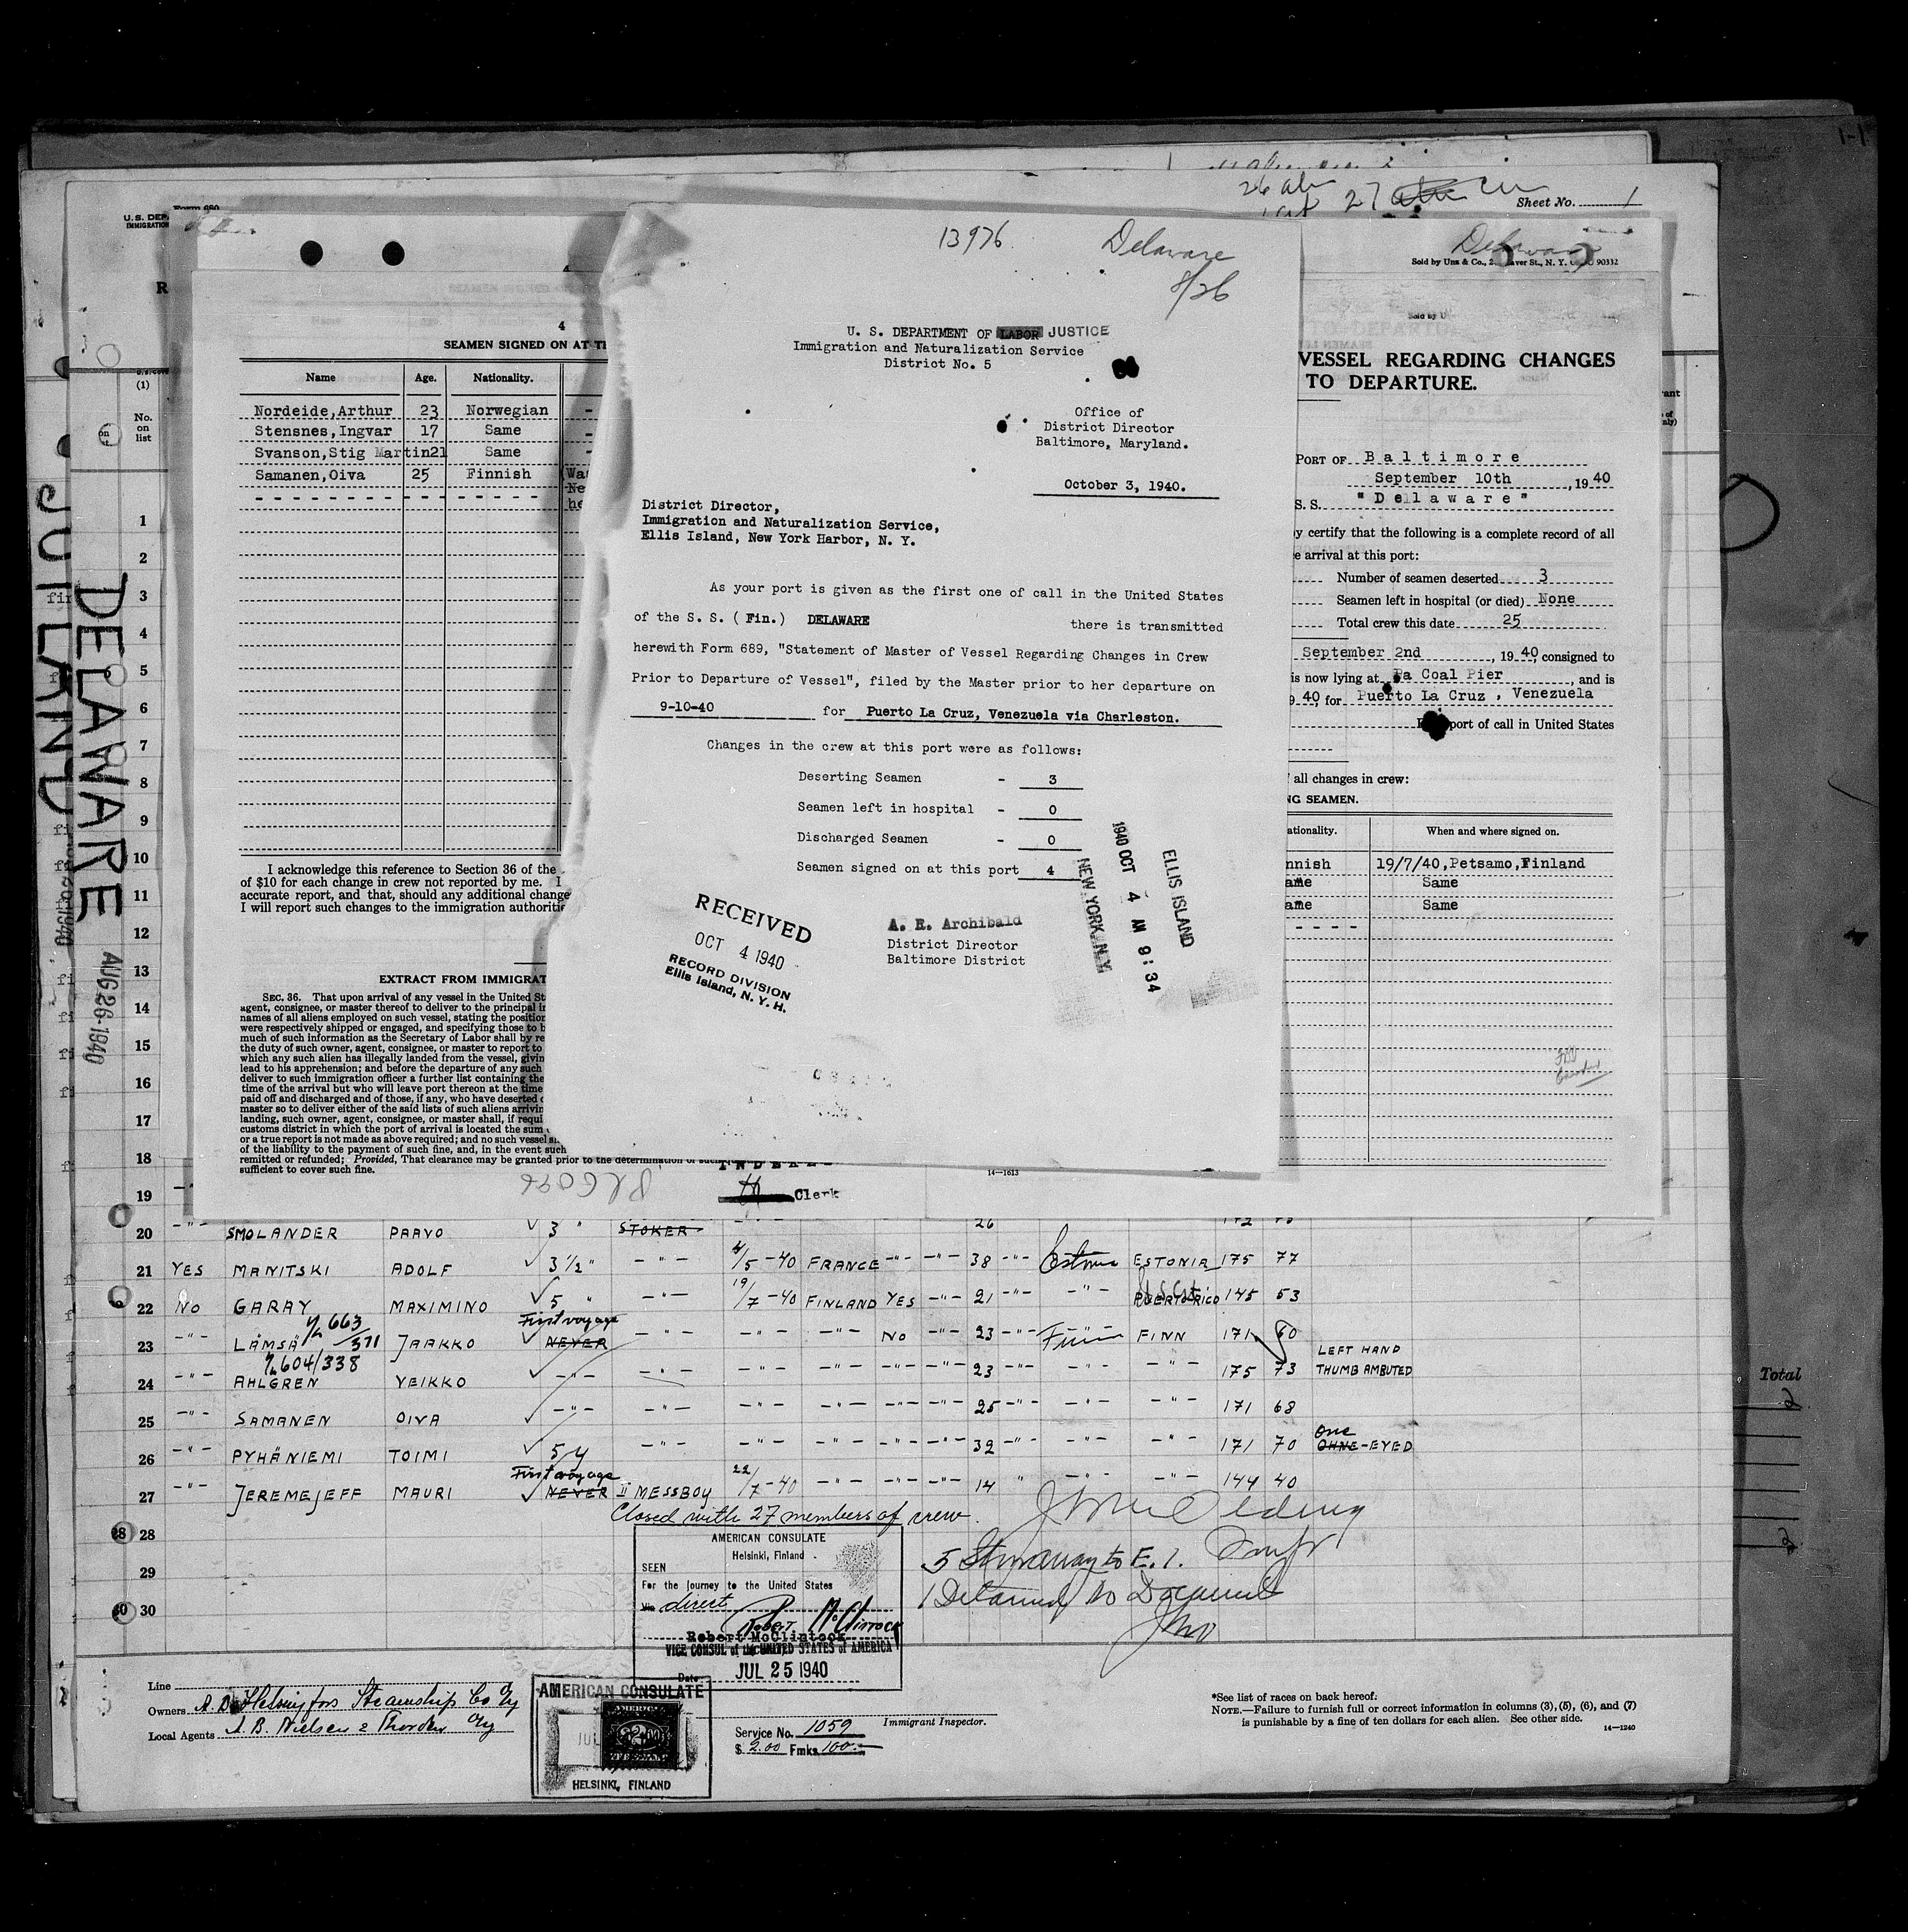 Sheet No. 1
U.S. DEP
IMMIGRATION
Form 680
Delaware
Sold by Unz & Co., 2 aver St., N. Y. 90332
4
SEAMEN SIGNED ON AT TH
Name Age. Nationality.
Nordeide, Arthur 23 Norwegian
Stensnes, Ingvar 17 Same
Svanson, Stig Martin 21 Same
Samanen, Oiva 25 Finnish
I acknowledge this reference to Section 36 of the
of $10 for each change in crew not reported by me. I
accurate report, and that, should any additional change
I will report such changes to the immigration authoritie
EXTRACT FROM IMMIGRAT
SEC. 36. That upon arrival of any vessel in the United St
agent, consignee, or master thereof to deliver to the principal in
names of all aliens employed on such vessel, stating the position
were respectively shipped or engaged, and specifying those to b
much of such information as the Secretary of Labor shall by re
the duty of such owner, agent, consignee, or master to report to
which any such alien has illegally landed from the vessel, givin
lead to his apprehension; and before the departure of any such
deliver to such immigration officer a further list containing the
time of the arrival but who will leave port thereon at the time
paid off and discharged and of those, if any, who have deserted o
master so to deliver either of the said lists of such aliens arrivin
landing, such owner, agent, consignee, or master shall, if requi
customs district in which the port of arrival is located the sum
or a true report is not made as above required; and no such vessel s
of the liability to the payment of such fine, and, in the event such
remitted or refunded; Provided, That clearance may be granted prior to the determination of such
sufficient to cover such fine.
Clerk
14—1613
13976. Delaware
8/26
U. S. DEPARTMENT OF LABOR JUSTICE
Immigration and Naturalization Service
District No. 5
Office of
District Director
Baltimore, Maryland.
October 3, 1940.
District Director,
Immigration and Naturalization Service,
Ellis Island, New York Harbor, N. Y.
As your port is given as the first one of call in the United States
of the S. S. (Fin.) DELAWARE there is transmitted
herewith Form 689, "Statement of Master of Vessel Regarding Changes in Crew
Prior to Departure of Vessel", filed by the Master prior to her departure on
9-10-40 for Puerto La Cruz, Venezuela via Charleston.
Changes in the crew at this port were as follows:
Deserting Seamen - 3
Seamen left in hospital - 0
Discharged Seamen - 0
Seamen signed on at this port 4
A. R. Archibald
District Director
Baltimore District
RECEIVED
OCT 4 1940
RECORD DIVISION
Ellis Island, N. Y. H.
ELLIS ISLAND
1940 OCT 4 AM 9:34
NEW YORK, N.Y.
VESSEL REGARDING CHANGES
TO DEPARTURE.
PORT OF Baltimore
September 10th, 1940
S. S. "Delaware"
y certify that the following is a complete record of all
e arrival at this port:
Number of seamen deserted 3
Seamen left in hospital (or died) None
Total crew this date 25
September 2nd, 1940, consigned to
is now lying at Pa Coal Pier, and is
9 40, for Puerto La Cruz, Venezuela
port of call in United States
all changes in crew:
NG SEAMEN.
ationality. When and where signed on.
nnish 19/7/40, Petsamo, Finland
ame Same
ame Same
JUTLAND
DELAWARE
AUG 26 1940
(1)
No. on list
1
2
3
4
5
6
7
8
9
10
11
12
13
14
15
16
17
18
19
20 -"- SMOLANDER PAAVO 3 " STOKER 26
21 YES MANITSKI ADOLF 3 1/2 " -"- 4/5-40 FRANCE -"- -"- 38 -"- Estonia ESTONIA 175 77
22 NO GARAY MAXIMINO 5 " -"- 19/7-40 FINLAND YES -"- 21 -"- PUERTO RICO 145 53
First voyage
23 -"- LÄMSÄ JAAKKO NEVER -"- -"- -"- NO -"- 23 -"- Finn FINN 171 60
663/371
24 -"- AHLGREN VEIKKO -"- -"- -"- -"- -"- -"- 23 -"- -"- -"- 175 73 LEFT HAND THUMB AMBUTED
604/338
25 -"- SAMANEN OIVA -"- -"- -"- -"- -"- -"- 25 -"- -"- -"- 171 68
26 -"- PYHÄNIEMI TOIMI 5 y -"- -"- -"- -"- -"- 32 -"- -"- -"- 171 70 One OHNE-EYED
First voyage
27 -"- JEREMEJEFF MAURI NEVER II MESSBOY 22/7-40 -"- -"- -"- 14 " -"- -"- 144 40
Closed with 27 members of crew.
28
29
30
5 Stowaway to E. I.
1 Detained No Document
AMERICAN CONSULATE
Helsinki, Finland
SEEN
For the Journey to the United States
Via direct
Robert McClintock
Robert McClintock
VICE CONSUL of the UNITED STATES of AMERICA
Date JUL 25 1940
AMERICAN CONSULATE
JUL
HELSINKI, FINLAND
Service No. 1059
$ 2.00 Fmks 100.—
Immigrant Inspector.
Line
Owners Helsingfors Steamship Co Oy
Local Agents A. B. Nielsen & Thorden Oy
*See list of races on back hereof.
NOTE.—Failure to furnish full or correct information in columns (3), (5), (6), and (7)
is punishable by a fine of ten dollars for each alien. See other side.
14—1240
Total
2
2